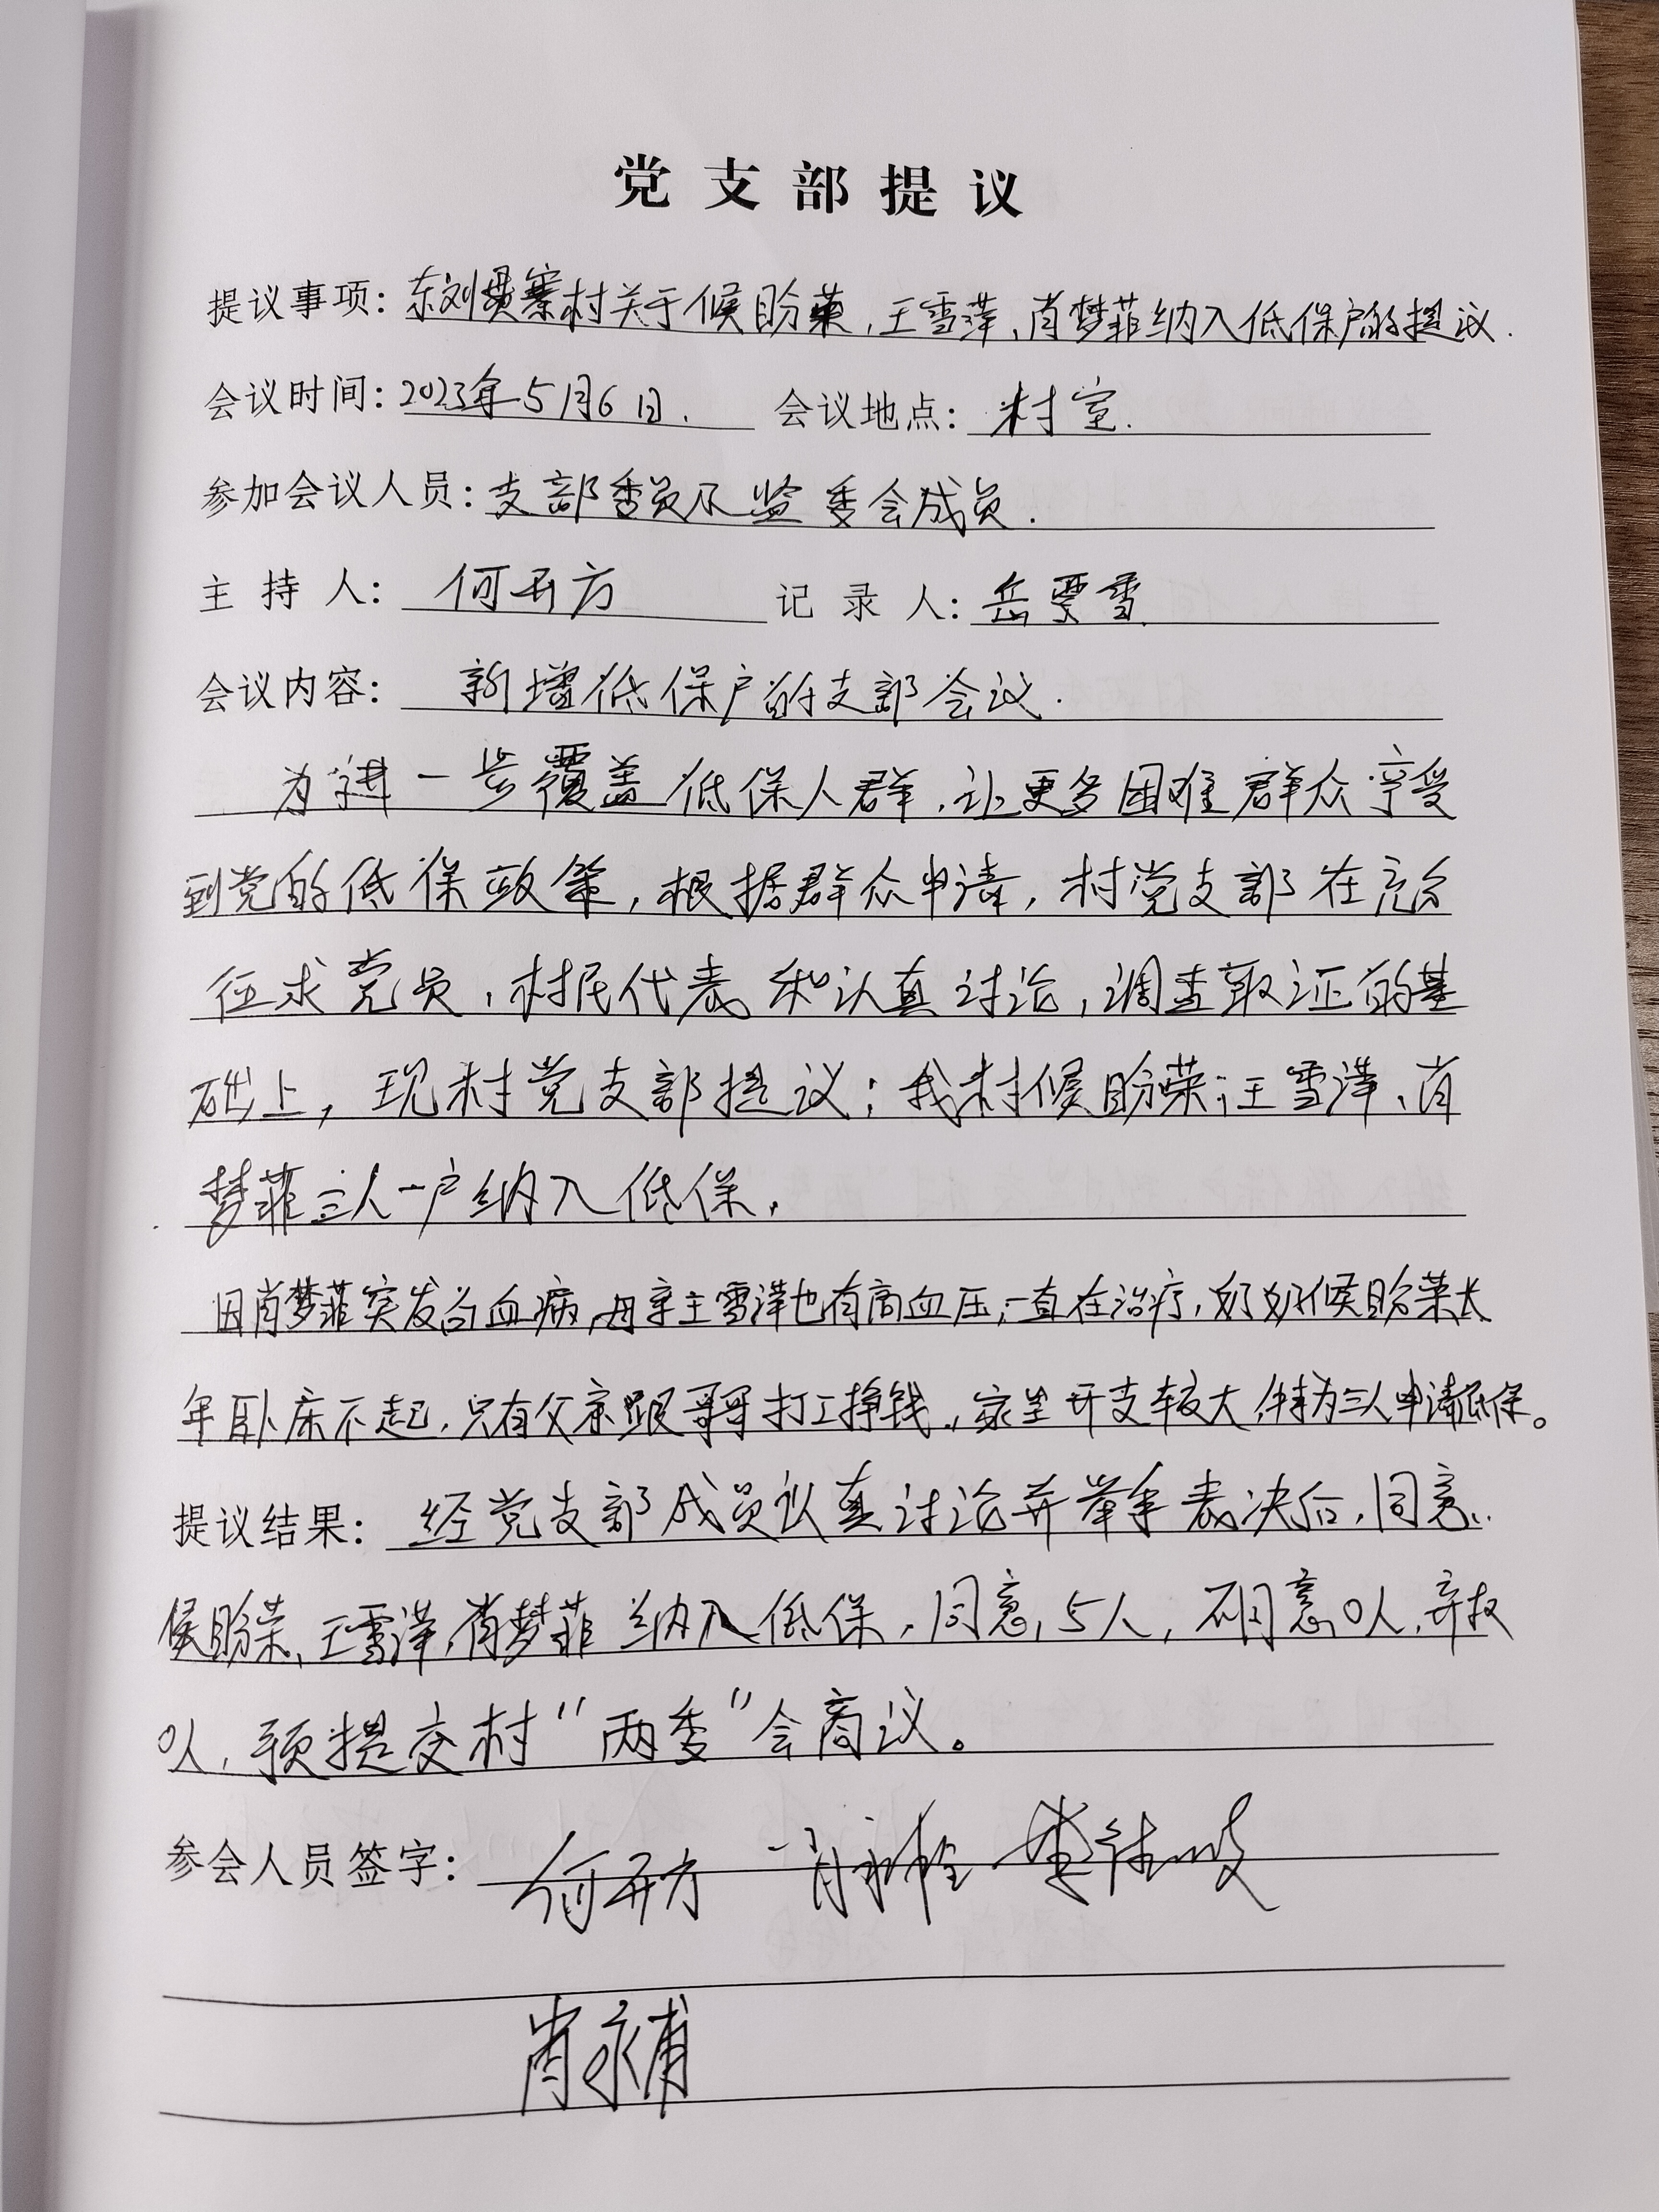 党支部提议
提议事项：东刘贯寨村关于候盼荣，王雪萍、肖梦菲纳入低保户的提议.
会议时间：2023年5月6日. 会议地点：村室.
参加会议人员：支部委员及监委会成员.
主持人：何开方 记录人：岳要雪
会议内容：新增低保户的支部会议.
为进一步覆盖低保人群，让更多困难群众享受
到党的低保政策，根据群众申请，村党支部在充分
征求党员，村民代表和认真讨论，调查取证的基
础上，现村党支部提议：我村候盼荣；王雪萍、肖
梦菲三人一户纳入低保，
因肖梦菲突发白血病，母亲王雪萍也有高血压，一直在治疗，奶奶候盼荣长
年卧床不起，只有父亲跟哥哥打工挣钱，家里开支较大，特为三人申请低保。
提议结果：经党支部成员认真讨论并举手表决后，同意
侯盼荣、王雪萍，肖梦菲纳入低保，同意，5人，不同意0人，弃权
0人，预提交村“两委”会商议。
参会人员签字：何开方
肖永甫